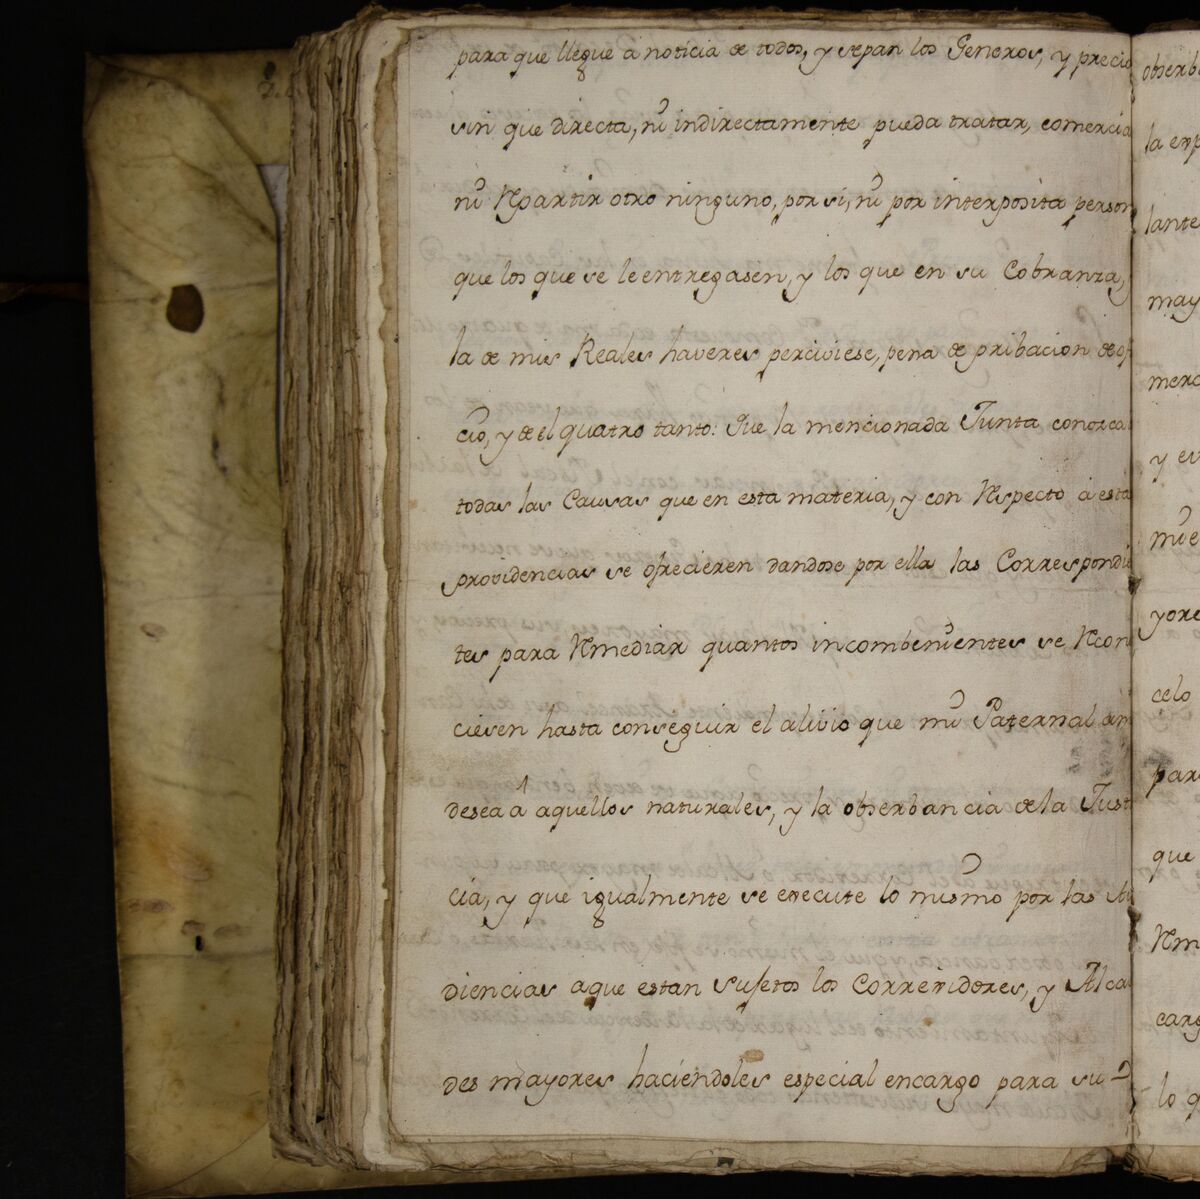 para que llegue a noticia de todos, y sepan los Generos, y precio
sin que directa, ni indirectamente pueda tratar, comercia
ni Repartir otro ninguno, por si, ni por interposita person
que los que se le entregasen, y los que en su Cobranza,
la de mis Reales haveres perciviese, pena de pribacion de of
cio, y de el quatro tanto: Que la mencionada Junta conozca
todas las Causas que en esta materia, y con Respecto a esta
providencias se ofrecieren dandose por ella las Correspondie
tes para Remediar quantos incombenientes se Recon
ciesen hasta conseguir el alivio que mi Paternal am
desea á aquellos naturales, y la obserbancia de la Just
cia, y que igualmente se execute lo mismo por las Au
diencias a que estan sujetos los Correxidores, y Alca
des mayores haciendoles especial encargo para su
obserb
la exp
lante
may
merc
y ev
mi e
yore
celo
para
que
Rem
carg
lo q